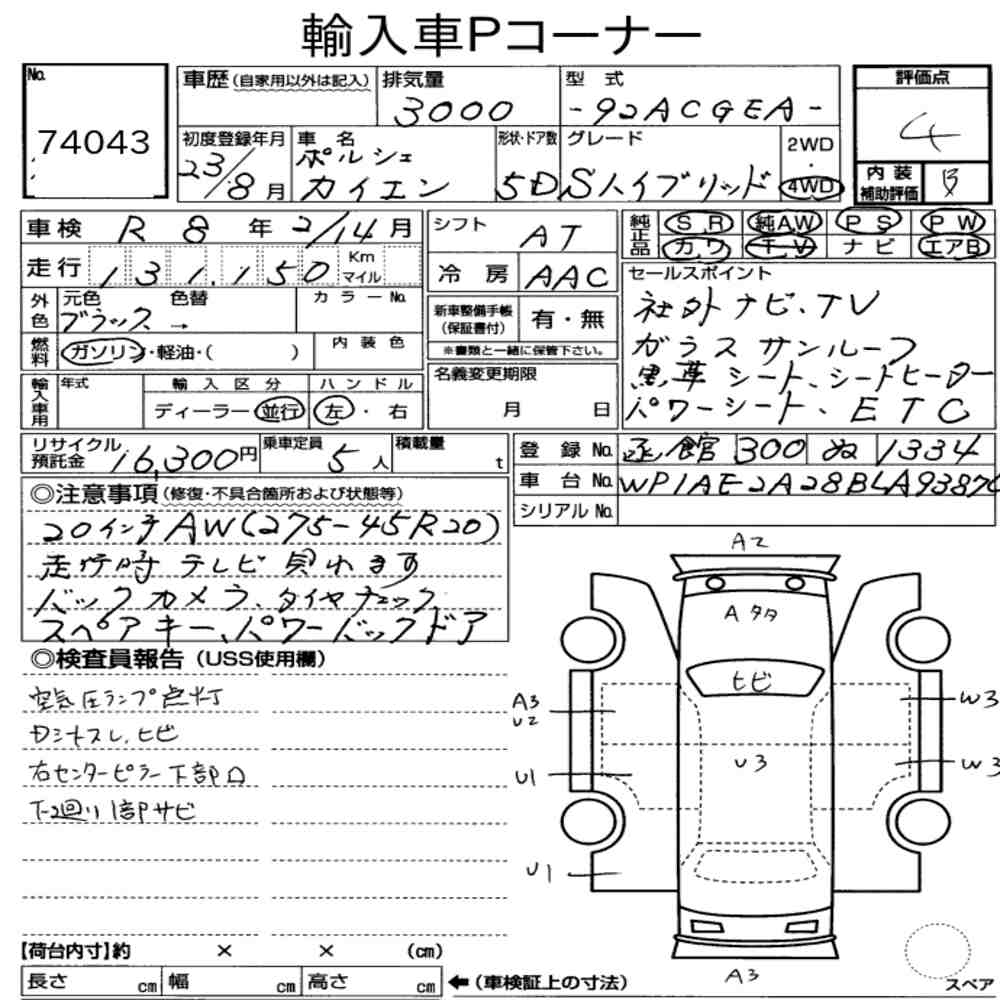 輸入車Pコーナー
No.
74043
車歴(自家用以外は記入)
排気量
3000
型式
-92ACGEA-
評価点
4
初度登録年月
23/8月
車名
ポルシェ
カイエン
形状・ドア数
5D
グレード
Sハイブリッド
2WD
・
4WD
内装
補助評価
B
車検 R 8 年 2/14 月
シフト AT
純正品
SR 純AW PS PW
カワ TV ナビ エアB
走行 131,150 Km マイル
冷房 AAC
セールスポイント
社外ナビ、TV
ガラスサンルーフ
黒革シート、シートヒーター
パワーシート、ETC
外色
元色 色替
ブラック →
カラーNo.
新車整備手帳
(保証書付)
有・無
※書類と一緒に保管下さい。
燃料
ガソリン・軽油・( )
内装色
名義変更期限
月 日
輸入車用
年式
輸入区分
ディーラー 並行
ハンドル
左・右
リサイクル
預託金
16,300円
乗車定員
5人
積載量
t
登録No. 函館 300 ぬ 1334
車台No. WP1AE2A28BLA9387
シリアルNo.
◎注意事項(修復・不具合箇所および状態等)
20インチAW(275-45R20)
走行時テレビ見れます
バックカメラ、タイヤチェック
スペアキー、パワーバックドア
◎検査員報告(USS使用欄)
空気圧ランプ点灯
右センターピラー下部
下廻り1部サビ
A2
Aタタ
ヒビ
A3
U2
W3
U3
U1
W3
U1
A3
スペア
【荷台内寸】約 × × (cm)
長さ cm 幅 cm 高さ cm
←(車検証上の寸法)